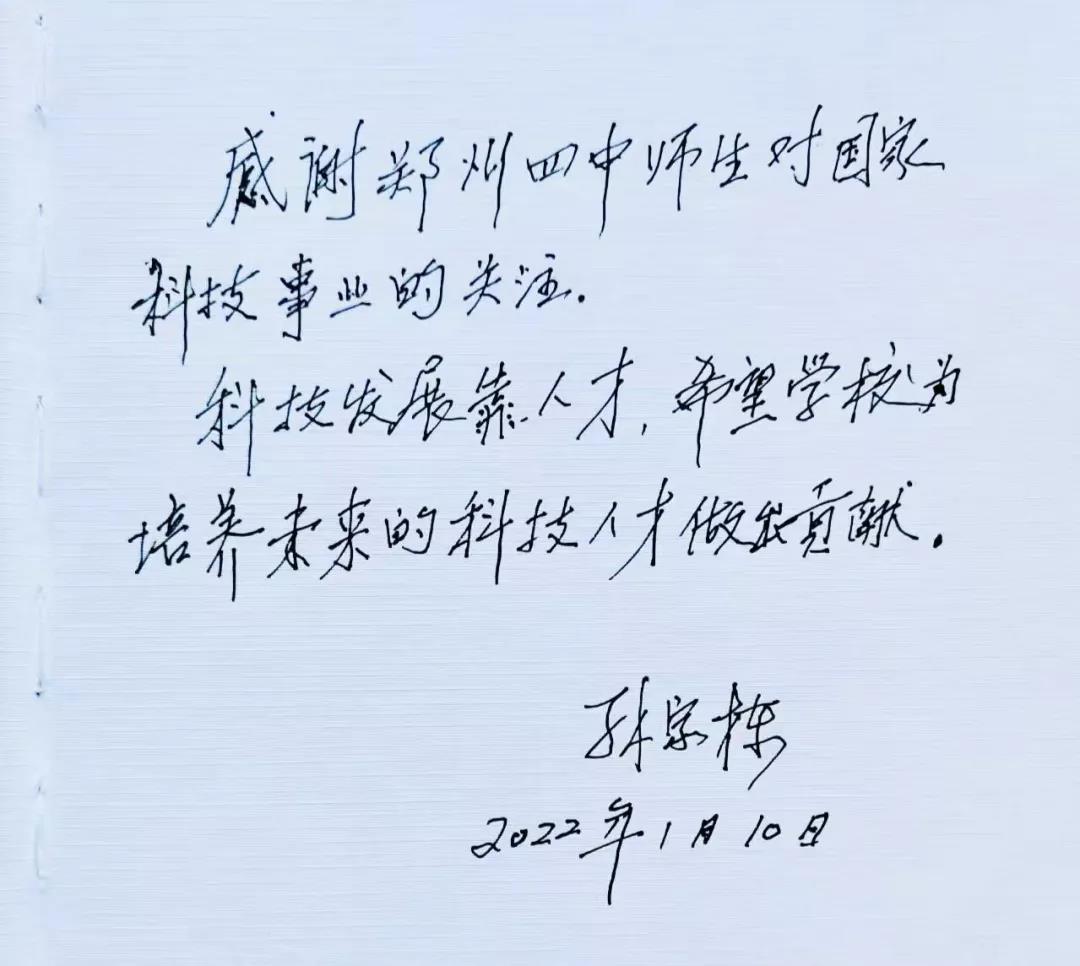 感谢郑州四中师生对国家
科技事业的关注.
科技发展靠人才,希望学校为
培养未来的科技人才做出贡献.
孙家栋
2022年1月10日